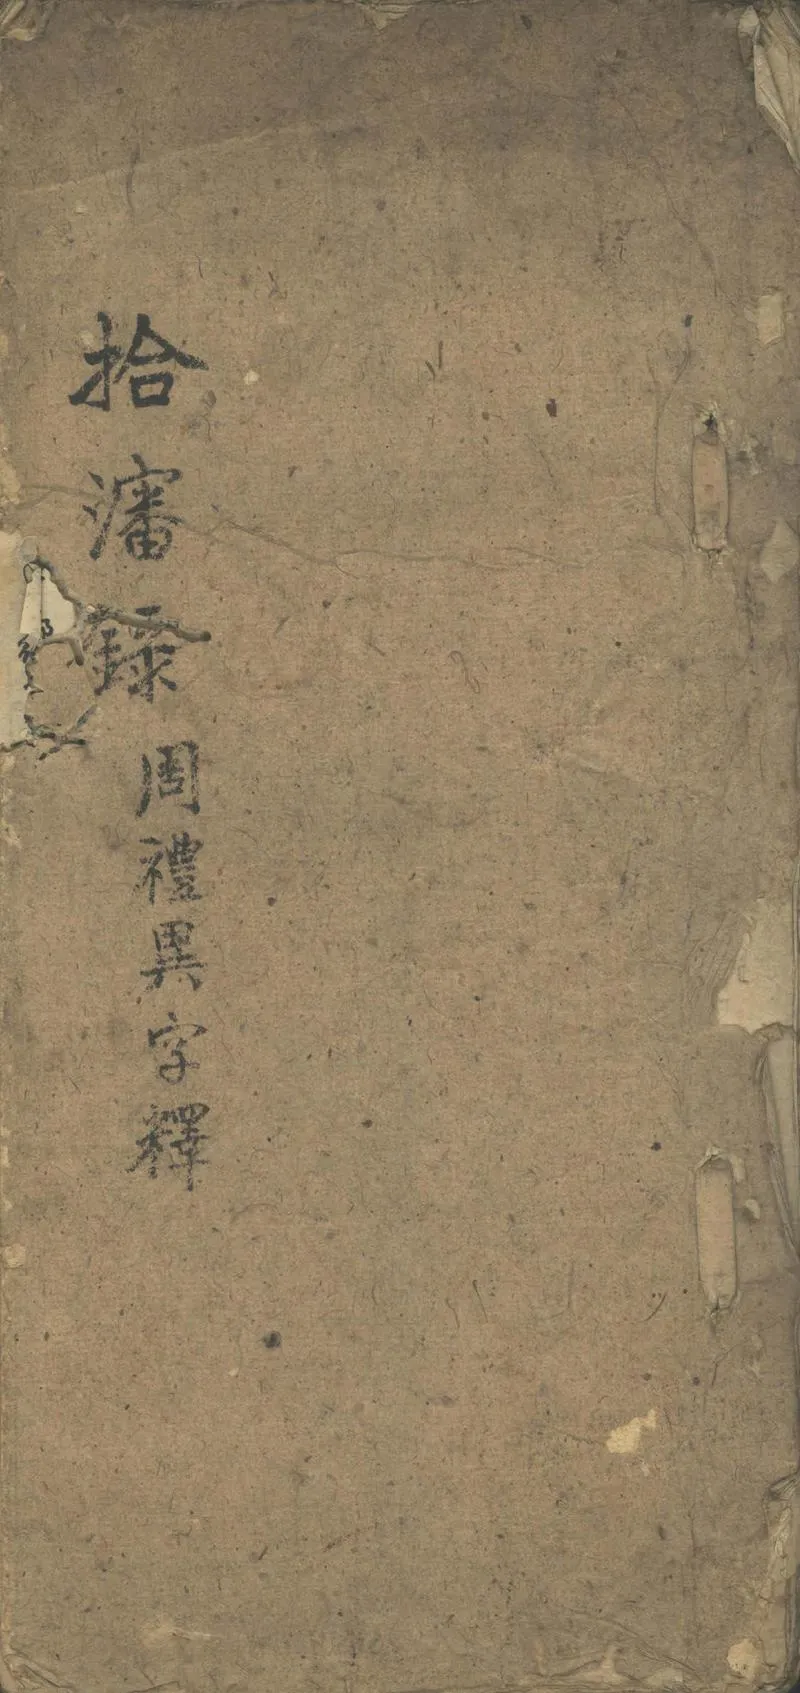 拾瀋錄周禮異字釋